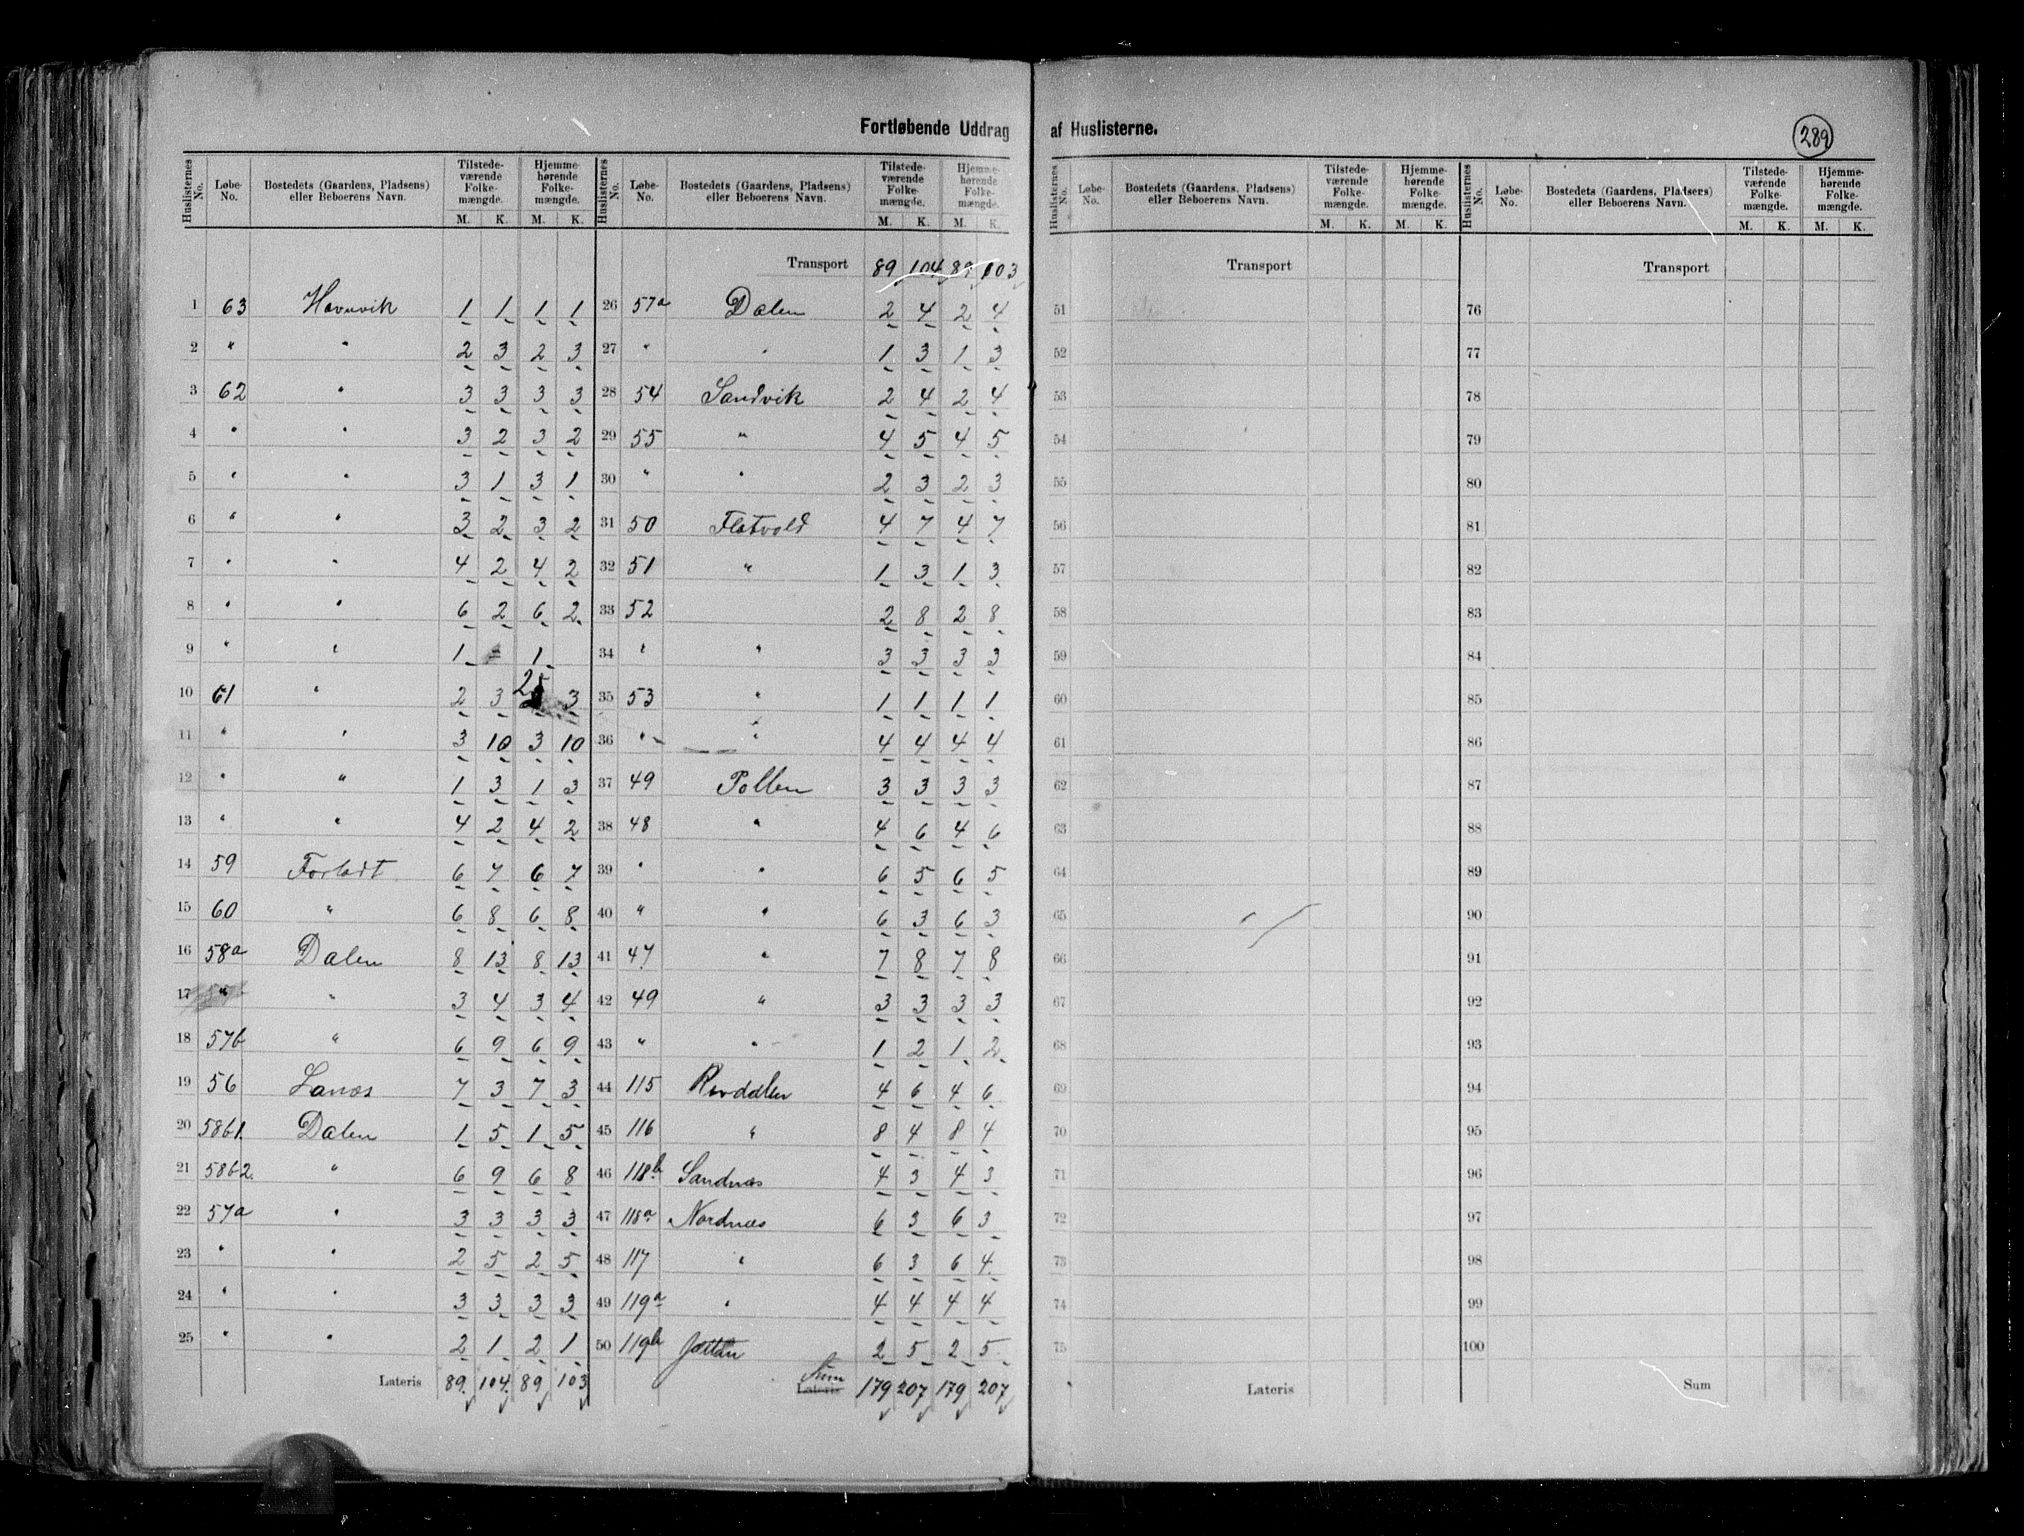 Fortløbende Uddrag af Huslisterne.
289
Huslisternes No. Løbe-No. Bostedets (Gaardens, Pladsens) eller Beboerens Navn. Tilstedeværende Folkemængde. M. K. Hjemmehørende Folkemængde. M. K.
1 63 Havnvik 1 1 1 1
2 " " 2 3 2 3
3 62 " 3 3 3 3
4 " " 3 2 3 2
5 " " 3 1 3 1
6 " " 3 2 3 2
7 " " 4 2 4 2
8 " " 6 2 6 2
9 " " 1 - 1
10 61 " 2 3 2 3
11 " " 3 10 3 10
12 " " 1 3 1 3
13 " " 4 2 4 2
14 59 Forladt 6 7 6 7
15 60 " 6 8 6 8
16 58a Dalen 8 13 8 13
17 " " 3 4 3 4
18 57b " 6 9 6 9
19 56 Lanæs 7 3 7 3
20 58b1. Dalen 1 5 1 5
21 58b2. " 6 9 6 8
22 57a " 3 3 3 3
23 " " 2 5 2 5
24 " " 3 3 3 3
25 " " 2 1 2 1
Lateris 89 104 89 103
Huslisternes No. Løbe-No. Bostedets (Gaardens, Pladsens) eller Beboerens Navn. Tilstedeværende Folkemængde. M. K. Hjemmehørende Folkemængde. M. K.
Transport 89 104 89 103
26 57a Dalen 2 4 2 4
27 " " 1 3 1 3
28 54 Sandvik 2 4 2 4
29 55 " 4 5 4 5
30 " " 2 3 2 3
31 50 Flatvold 4 7 4 7
32 51 " 1 3 1 3
33 52 2 8 2 8
34 " " 3 3 3 3
35 53 " 1 1 1 1
36 " " 4 4 4 4
37 49 Pollen 3 3 3 3
38 48 " 4 6 4 6
39 " " 6 5 6 5
40 " " 6 3 6 3
41 47 " 7 8 7 8
42 49 " 3 3 3 3
43 " " 1 2 1 2
44 115 Revdalen 4 6 4 6
45 116 " 8 4 8 4
46 118b Sandnæs 4 3 4 3
47 118a Nordnæs 6 3 6 3
48 117 " 6 3 6 4
49 119a " 4 4 4 4
50 119b 2 5 2 5
Sum
Lateris 179 207 179 207
Huslisternes No. Løbe-No. Bostedets (Gaardens, Pladsens) eller Beboerens Navn. Tilstedeværende Folkemængde. M. K. Hjemmehørende Folkemængde. M. K.
Transport
51
52
53
54
55
56
57
58
59
60
61
62
63
64
65
66
67
68
69
70
71
72
73
74
75
Lateris
Huslisternes No. Løbe-No. Bostedets (Gaardens, Pladsens) eller Beboerens Navn. Tilstedeværende Folkemængde. M. K. Hjemmehørende Folkemængde. M. K.
Transport
76
77
78
79
80
81
82
83
84
85
86
87
88
89
90
91
92
93
94
95
96
97
98
99
100
Sum